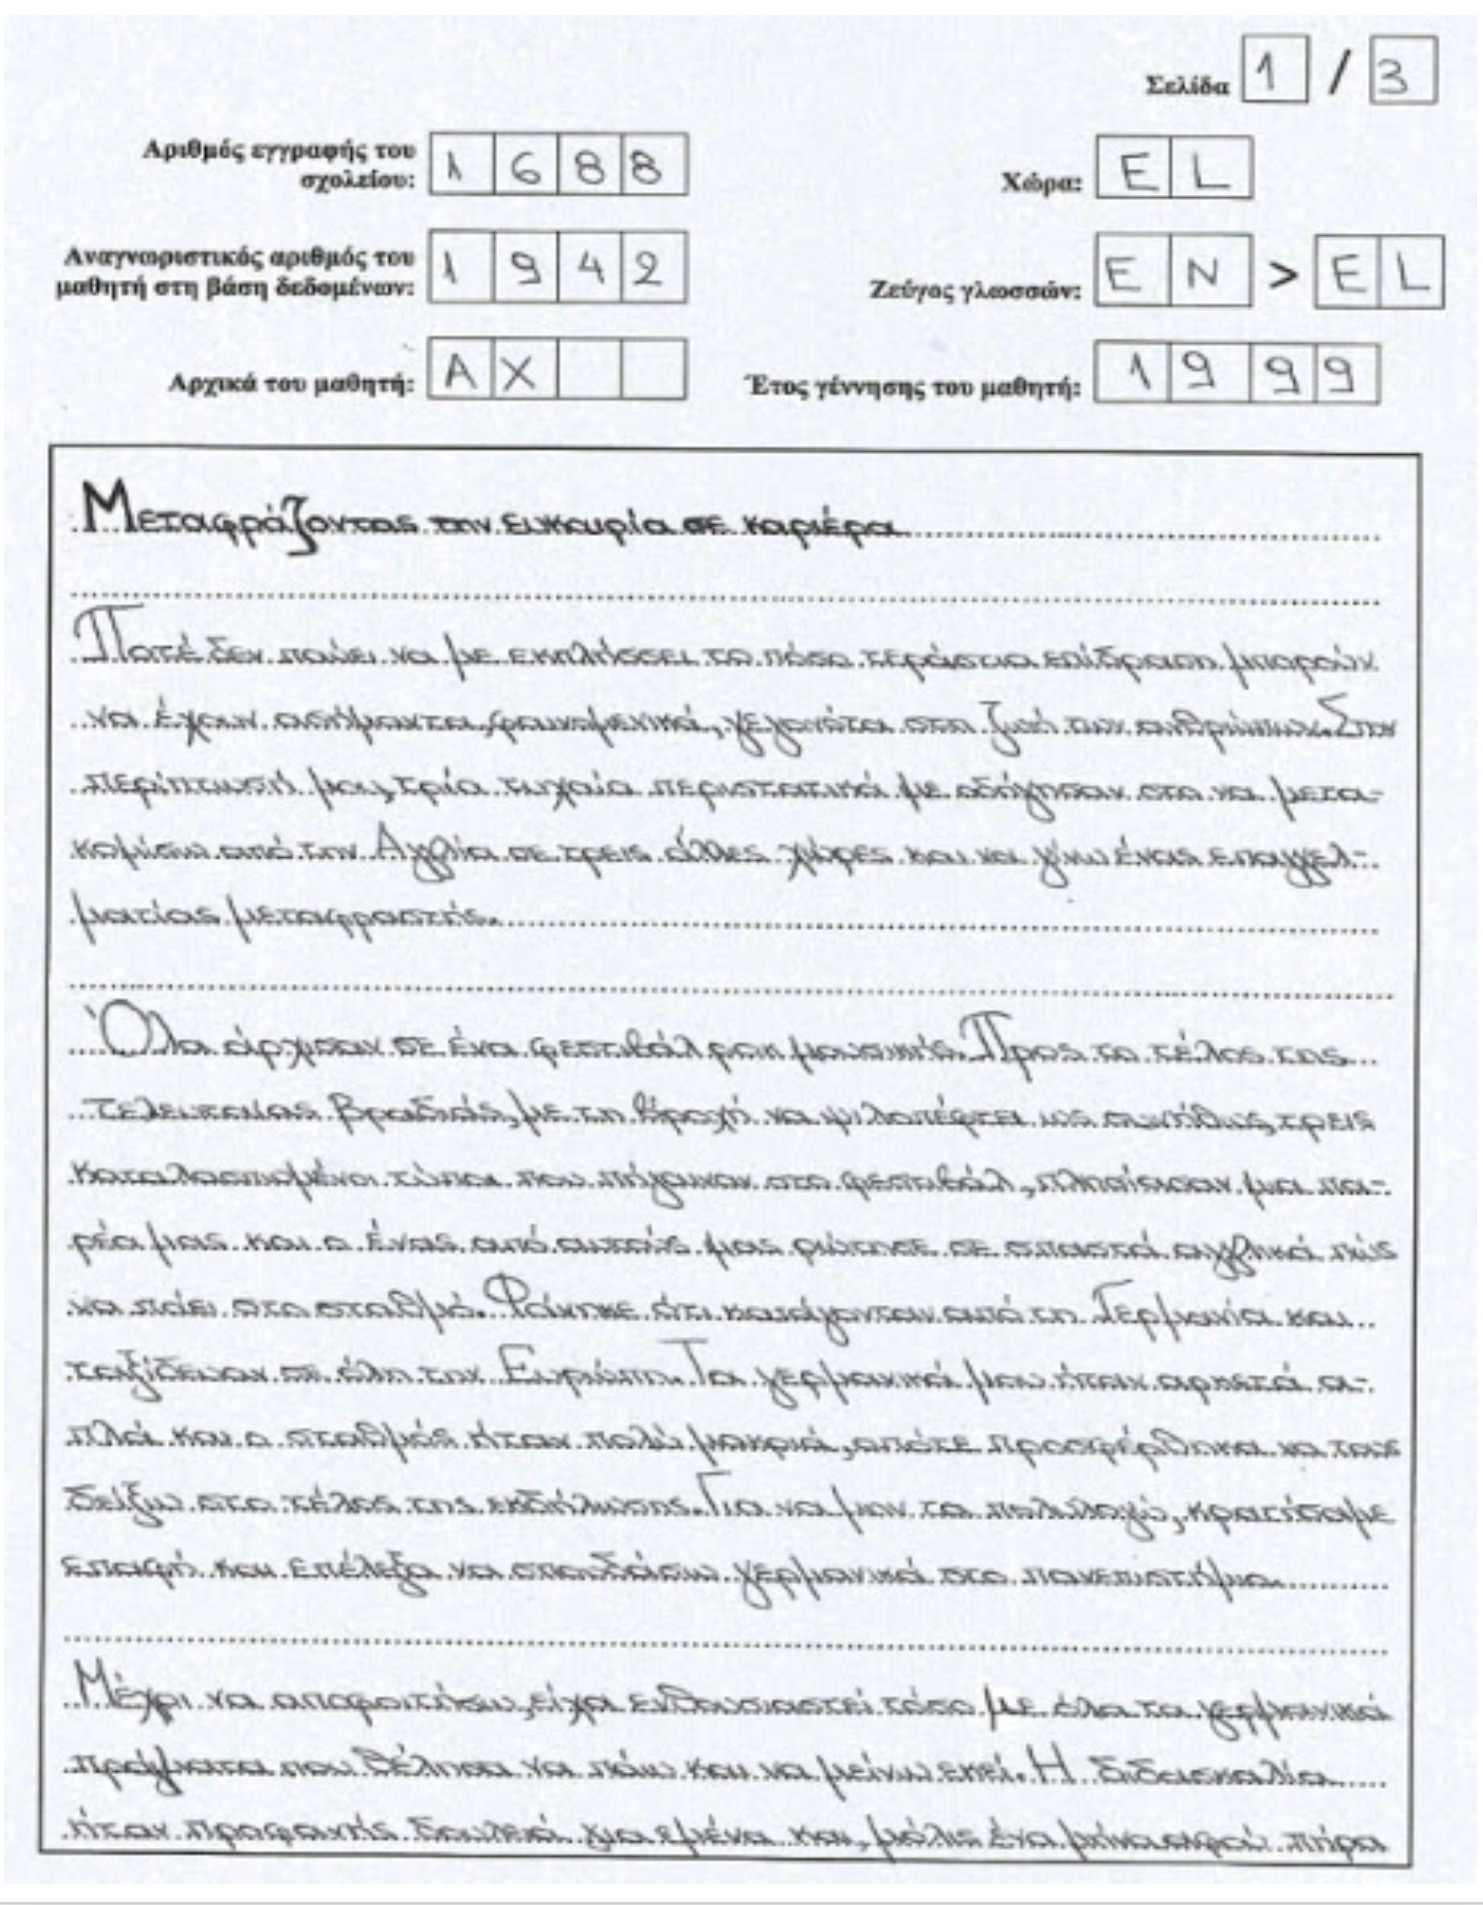 Σελίδα 1 / 3
Αριθμός εγγραφής του σχολείου: 1688
Χώρα: EL
Αναγνωριστικός αριθμός του μαθητή στη βάση δεδομένων: 1942
Ζεύγος γλωσσών: EN > EL
Αρχικά του μαθητή: AX
Έτος γέννησης του μαθητή: 1999
Μεταφράζοντας την ευκαιρία σε καριέρα
Ποτέ δεν παύει να με εκπλήσσει το πόσο τεράστια επίδραση μπορούν
να έχουν ασήμαντα, φαινομενικά, γεγονότα στη ζωή των ανθρώπων. Στην
περίπτωσή μου, τρία τυχαία περιστατικά με οδήγησαν στο να μετα-
κομίσω από την Αγγλία σε τρεις άλλες χώρες και να γίνω ένας επαγγελ-
ματίας μεταφραστής.
Όλα άρχισαν σε ένα φεστιβάλ ροκ μουσικής. Προς το τέλος της
τελευταίας βραδιάς, με τη βροχή να ψιλοπέφτει ως συνήθως, τρεις
καταλασπωμένοι τύποι που πήγαιναν στο φεστιβάλ, πλησίασαν μια πα-
ρέα μας και ο ένας από αυτούς μας ρώτησε σε σπαστά αγγλικά πώς
να πάει στο σταθμό. Φάνηκε ότι κατάγονταν από τη Γερμανία και
ταξίδευαν σε όλη την Ευρώπη. Τα γερμανικά μου ήταν αρκετά α-
πλά και ο σταθμός ήταν πολύ μακριά, οπότε προσφέρθηκα να τους
δείξω στο τέλος της εκδήλωσης. Για να μην τα πολυλογώ, κρατήσαμε
επαφή και επέλεξα να σπουδάσω γερμανικά στο πανεπιστήμιο.
Μέχρι να αποφοιτήσω, είχα ενθουσιαστεί τόσο με όλα τα γερμανικά
πράγματα που θέλησα να πάω και να μείνω εκεί. Η διδασκαλία
ήταν προφανής δουλειά για εμένα και, μόλις ένα μήνα αφού πήρα